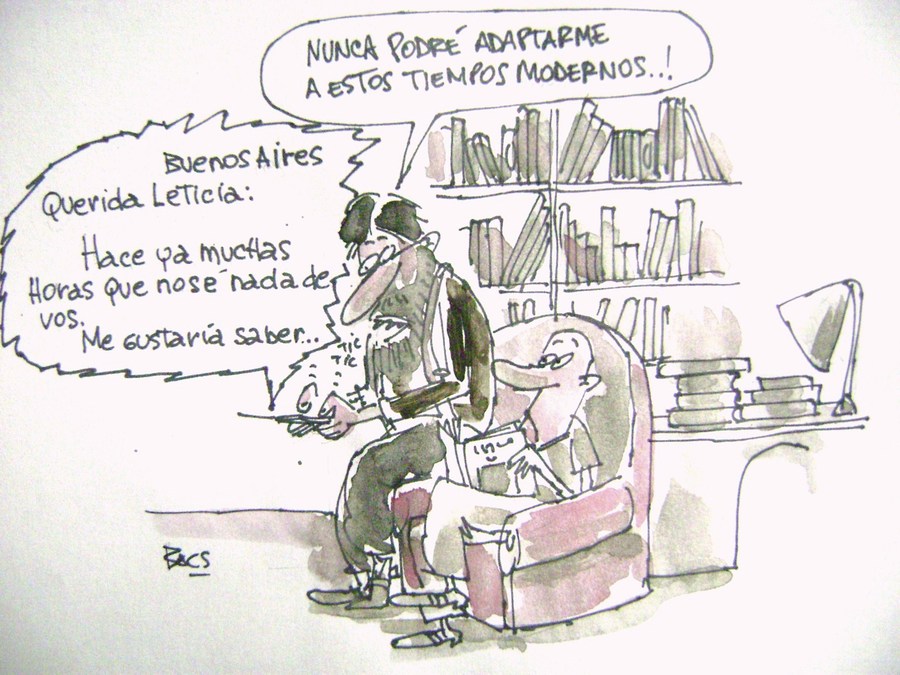 NUNCA PODRÉ ADAPTARME
A ESTOS TIEMPOS MODERNOS..!
BUENOS AIRES
QUERIDA LETICIA:
HACE YA MUCHAS
HORAS QUE NO SÉ NADA DE
VOS.
ME GUSTARÍA SABER...
TIC
TIC
TIC
BACS